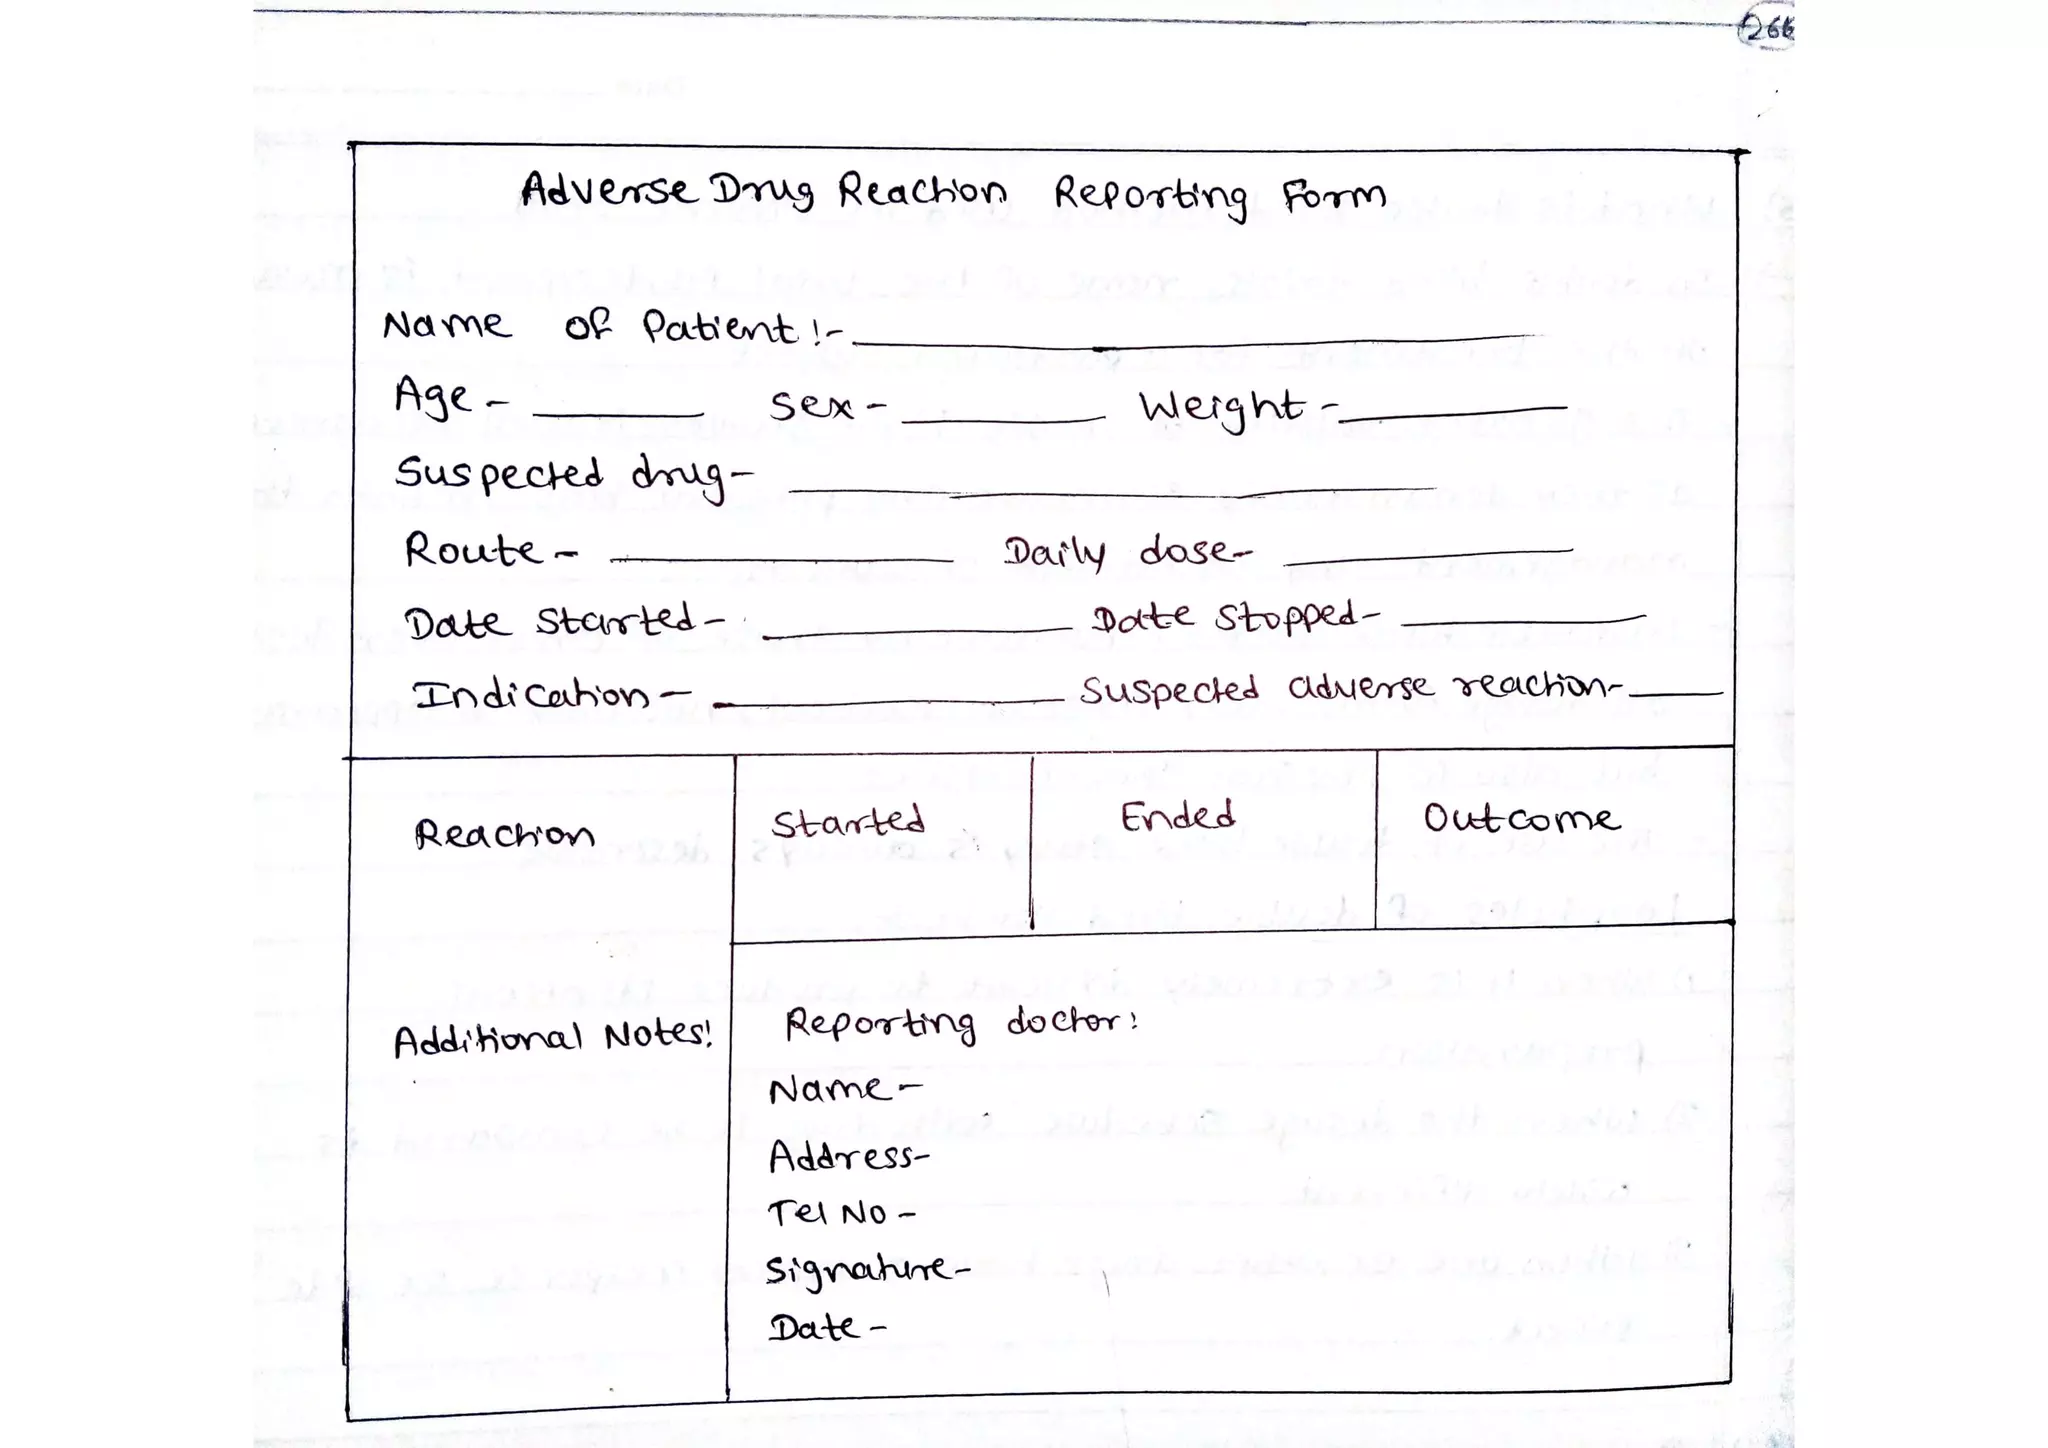 Adverse Drug Reaction Reporting Form
Name of Patient :-
Age - Sex - Weight -
Suspected drug -
Route - Daily dose -
Date Started - Date Stopped -
Indication - Suspected adverse reaction -
Reaction Started Ended Outcome
Additional Notes: Reporting doctor:
Name -
Address -
Tel No -
Signature -
Date -